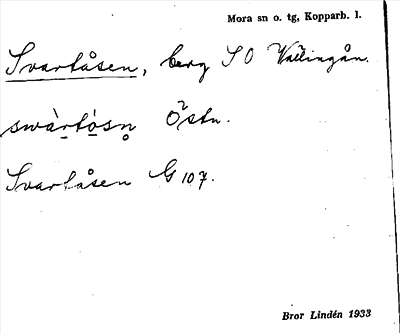 Mora sn o. tg, Kopparb. l.
Svartåsen, berg S O Vallingån.
swàrtósn̥ Östn.
Svartåsen G 107.
Bror Lindén 1933